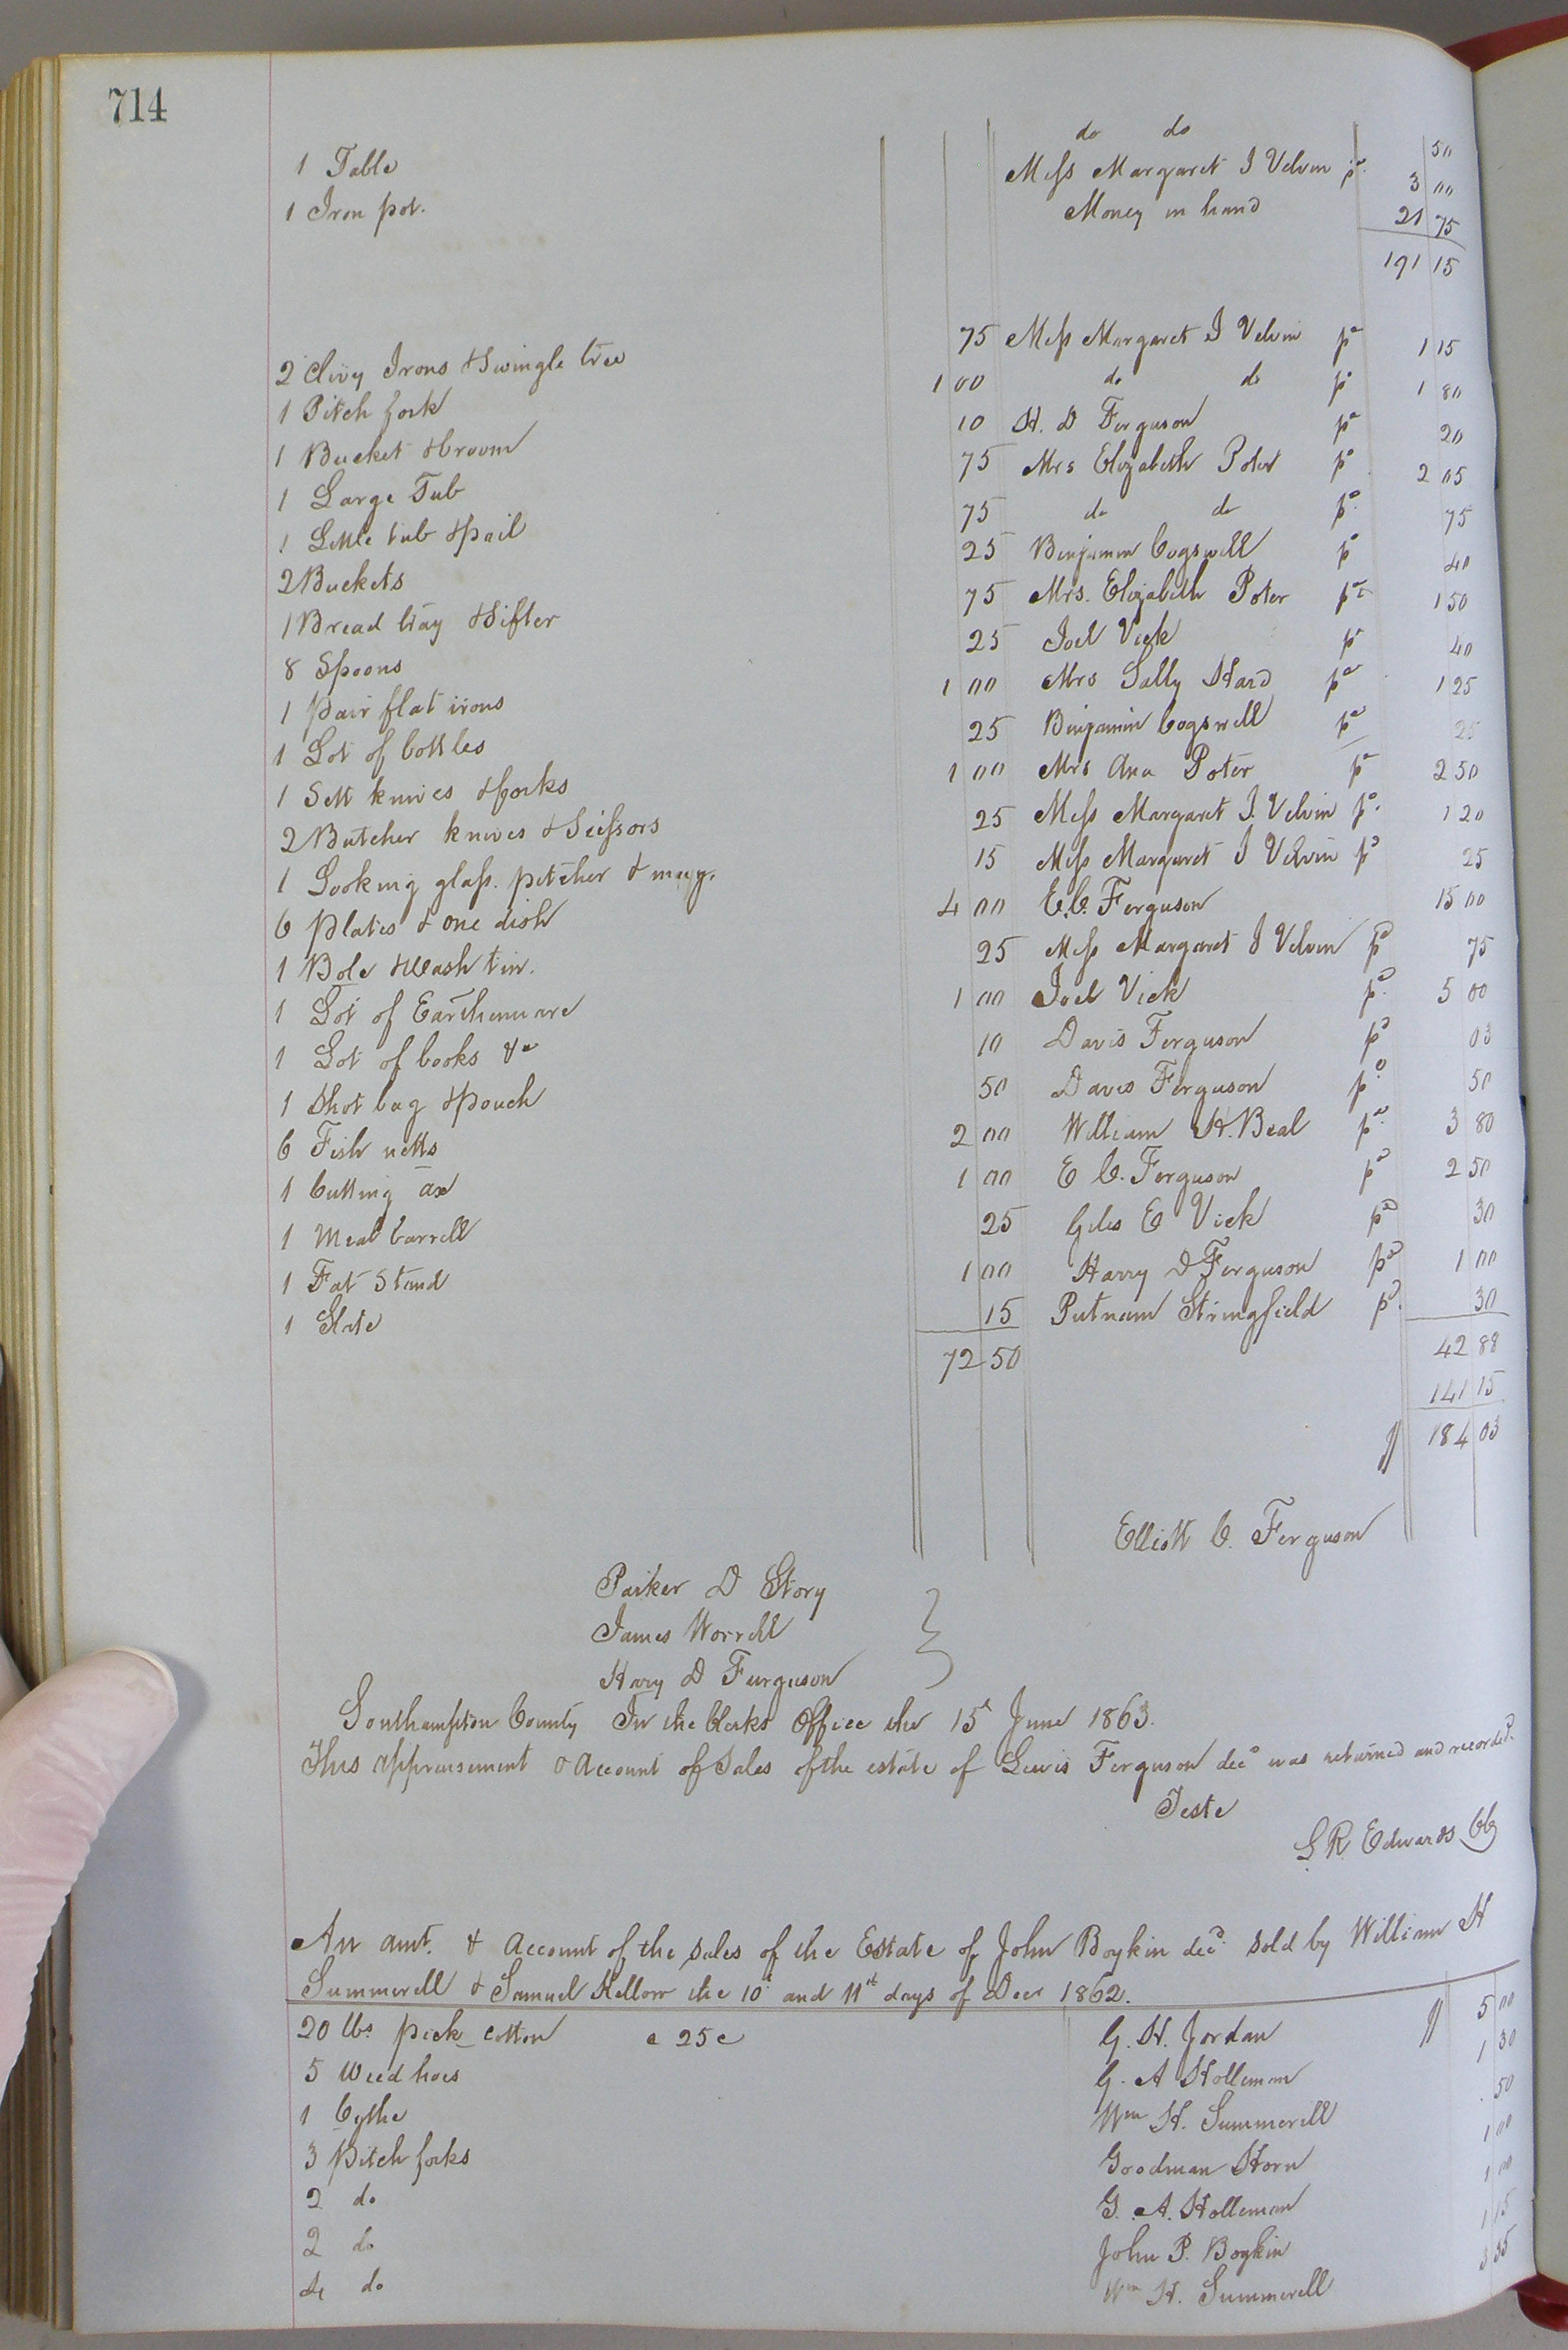 714
do do 50
1 Table Miss Margaret J Velvin pd. 3 00
1 Iron pot. Money in hand 21 75
191 15
2 Clivy Irons & Swingle tree 75 Miss Margaret J Velvin pd 1 15
1 Pitch fork 1 00 do do pd 1 80
1 Bucket & broom 10 H. D Ferguson pd 20
1 Large Tub 75 Mrs Elizabeth Poter pd 2 05
1 Little tub & pail 75 do do pd. 75
2 Buckets 25 Benjamin Cogswell pd 40
1 Bread tray & Sifter 75 Mrs. Elizabeth Poter pd 1 50
8 Spoons 25 Joel Vick pd 40
1 pair flat irons 1 00 Mrs Sally Ward pd 1 25
1 Lot of bottles 25 Benjamin Cogswell pd 25
1 Sett knives & forks 1 00 Mrs Ana Poter pd 2 50
2 Butcher knives & Scissors 25 Miss Margaret J. Velvin pd. 1 20
1 Looking glass. pitcher & mug. 15 Miss Margaret J Velvin pd 25
6 Plates & one dish 4 00 E. C. Ferguson 15 00
1 Bole & Wash tin. 25 Miss Margaret J Velvin pd 75
1 Lot of Earthenware 1 00 Joel Vick pd. 5 00
1 Lot of books &c 10 Davis Ferguson pd 03
1 Shot bag & Pouch 50 Davis Ferguson pd 50
6 Fish netts 2 00 William H. Beal pd. 3 80
1 Cutting ax 1 00 E C. Ferguson pd 2 50
1 Meal barrell 25 Giles E Vick pd 30
1 Fat Stand 1 00 Harry D Ferguson pd 1 00
1 Slate 15 Putnam Stringfield pd. 30
72 50 42 88
141 15
$ 184 03
Elliott C. Ferguson
Parker D Story
James Worrell
Harry D Furguson
Southampton County In the Clerks Office the 15th June 1863.
This appraisement & Account of Sales of the estate of Lewis Ferguson decd was returned and recorded.
Teste
L R Edwards CC
An amt. & Account of the sales of the Estate of John Boykin decd. sold by William H
Summerell & Samuel Kellow the 10th and 11th days of Decr 1862.
20 lbs pick cotton a 25c G. H. Jordan $ 5 00
5 Weed hoes G. A Holleman 1 30
1 Cythe Wm H. Summerell . 50
3 Pitch forks Goodman Horn 1 00
2 do G. A. Holleman 1 00
2 do John P. Boykin 1 15
4 do Wm H. Summerell 3 35